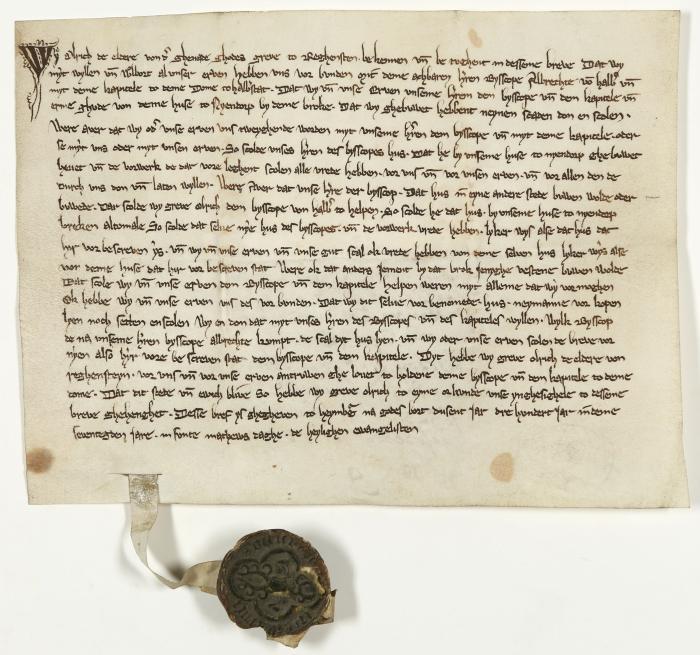 Wy Olrich de eldere von d' ghenade ghodes greve to Reghensten. bekennen vn̄ betughent in desseme breve Dat wy
myt wyllen vn̄ wlbort al unser erven hebben uns vor bunden myt deme achbaren hr̄en Bysscope Albrechte vō halb' vn̄
myt deme kapitele to deme Dome to halb'stat. Dat wy vn̄ unse Erven unseme hr̄en dem bysscope vn̄ dem kapitele vn̄
erme ghude von deme huse to Nyendorp by deme broke. Dat wy ghebuwet hebbent neynen scaden don en scolen.
Were aver dat wy od' unse erven uns tweyghende worden myt unseme hr̄en dem bysscope vn̄ myt deme kapitele. oder
se myt uns oder myt unsen erven. So scolde unses hr̄en des bysscopes hus. Dat he by unseme huse to nyendorp ghe buwet
hevet vn̄ de vorwerk de dar vore leghent scolen alle vrede hebben. vor uns vn̄ vor unsen erven. vn̄ vor allen den de
Durch uns don vn̄ laten wyllen. Were Aver dat unse hr̄e der bysscop. Dat hus in eyne andere stede buwen wolde oder
buwede. Dar scolde wy greve olrich dem bysscope von halb' to helpen. So scolde he dat hus. by unseme huse to nyendorp
breken altomale. So scolde dat selve nyē hus des bysscopes. vn̄ de vorwerk vrede hebben. lyker wys alse dat hus dat
hir vor bescreven ys. vn̄ wy vn̄ unse erven vn̄ unse gut scal ok vrede hebben von deme selven hus lyker wys alse
von deme huse dat hir vor bescreven stat Were ok dat anders jement by dat brok jenyghe vestene buwen wolde
Dat scole wy vn̄ unse erven dem Bysscope vn̄ dem kapitele helpen weren myt alleme dat wy vormoghen
Ok hebbe wy vn̄ unse erven uns des vor bunden. Dat wy dit selve vor benomede hus. neymanne vor kopen
lyen noch setten en scolen Wy en don dat myt unses hr̄en des Bysscopes vn̄ des kapiteles wyllen. Wylk Bysscop
de na unseme hr̄en bysscope albrechte kumpt. de scal dyt hus hen. vn̄ wy oder unse erven scolen de breve vor
nyen also hyr vore be screven stat dem bysscope vn̄ dem kapitele. Dyt hebbe wy greve olrich de eldere von
reghensteyn. vor uns vn̄ vor unse erven untruwen ghe lovet to holdene deme bysscope vn̄ dem kapitele to deme
dome. Dat dit stede vn̄ ewich blive So hebbe wy greve olrich to eyme orkunde unse ynghesighele to desseme
breve ghehenghet. Desse bref ys ghegheven to heymb'g na godes bort dusent jar dre hundert jar in deme
seventegden jare. in sunte mathews daghe. de heylighen ewangelisten